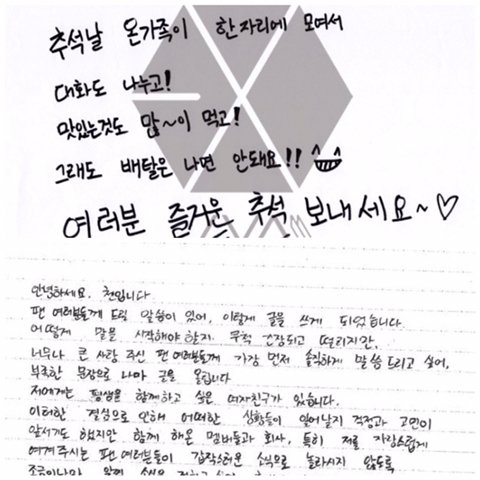 추석날 온가족이 한자리에 모여서
대화도 나누고!
맛있는것도 많~이 먹고!
그래도 배탈은 나면 안돼요!!
여러분 즐거운 추석 보내세요~♡
안녕하세요. 첸입니다
팬 여러분들께 드릴 말씀이 있어, 이렇게 글을 쓰게 되었습니다.
어떻게 말을 시작해야할지 무척 긴장되고 떨리지만,
너무나 큰 사랑 주신 팬 여러분들께 가장 먼저 솔직하게 말씀드리고 싶어,
부족한 문장으로 나마 글을 올립니다
저에게는 평생을 함께하고 싶은 여자친구가 있습니다.
이러한 결심으로 인해 어떠한 상황들이 일어날지 걱정과 고민이
앞서기도 했지만 함께 해온 멤버들과 회사, 특히 저를 자랑스럽게
여겨주시는 팬 여러분들이 갑작스러운 소식으로 놀라시지 않도록
조금이나마